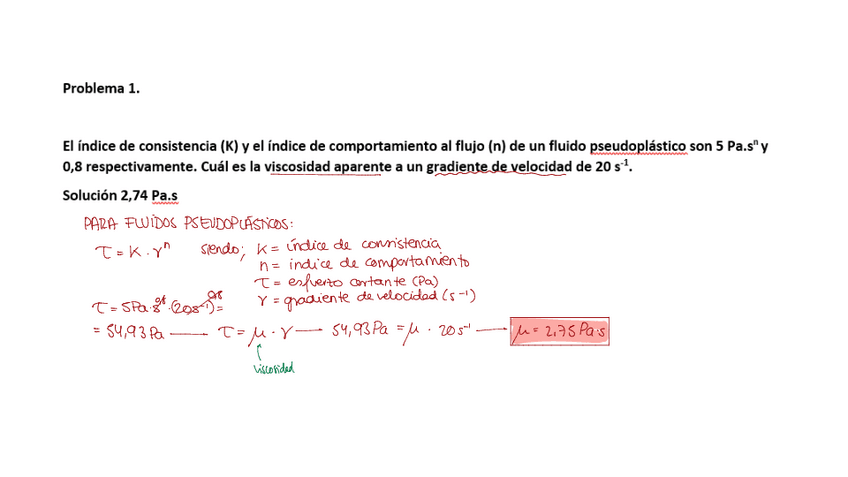 Problema 1.
El índice de consistencia (K) y el índice de comportamiento al flujo (n) de un fluido pseudoplástico son 5 Pa.sⁿ y
0,8 respectivamente. Cuál es la viscosidad aparente a un gradiente de velocidad de 20 s⁻¹.
Solución 2,74 Pa.s
PARA FLUIDOS PSEUDOPLÁSTICOS:
τ = K · γⁿ siendo; K = índice de consistencia
n = índice de comportamiento
τ = esfuerzo cortante (Pa)
γ = gradiente de velocidad (s⁻¹)
τ = 5Pa·s^0,8 · (20s⁻¹)^0,8 =
= 54,93 Pa → τ = μ · γ → 54,93 Pa = μ · 20 s⁻¹ → μ = 2,75 Pa·s
viscosidad